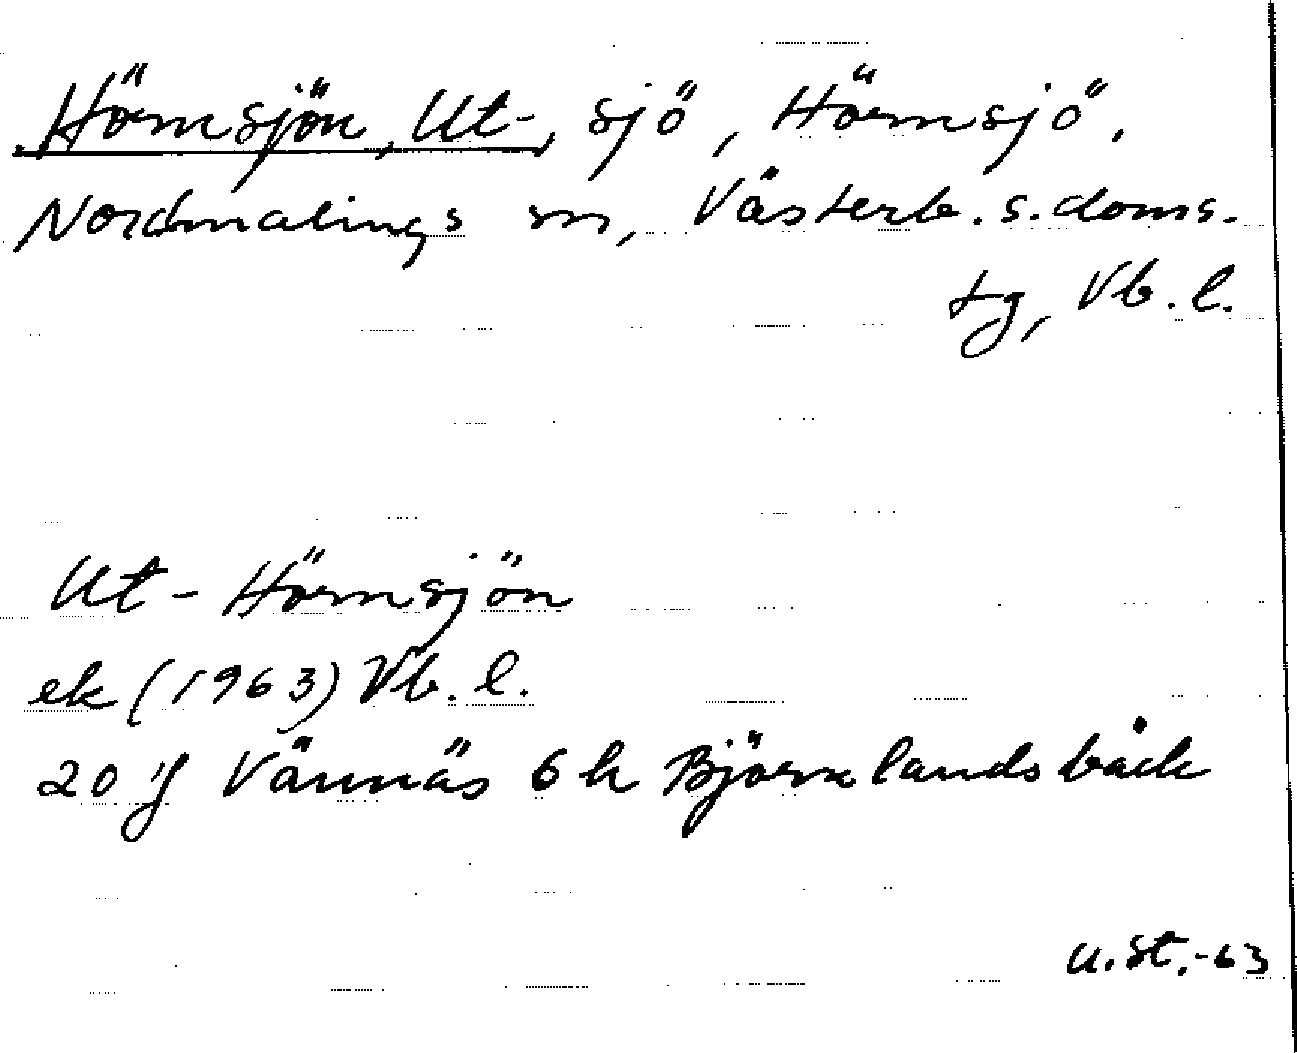 Hörnsjön, Ut-, sjö, Hörnsjö,
Nordmalings sn, Västerb. s. doms.
tg, Vb. l.
Ut-Hörnsjön
ek (1963) Vb. l.
20 J Vännäs 6 h Björnlandsbäck
U. St. -63